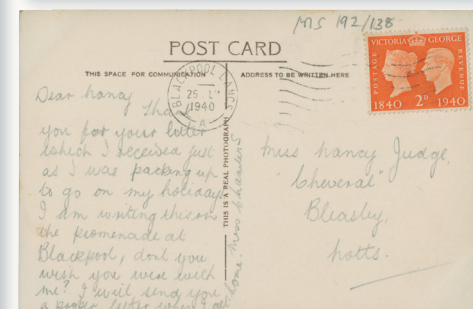 MS 192/138
POST CARD
THIS SPACE FOR COMMUNICATION
ADDRESS TO BE WRITTEN HERE
VICTORIA GEORGE
POSTAGE
REVENUE
1840 2D 1940
BLACKPOOL LANCS
1940
Dear Nancy
Thank
you for your letter
which I received just
as I was packing up
to go on my holiday.
I am writing this on
the promenade at
Blackpool, dont you
wish you were with
me? I will send you
a proper letter when I get
home.
THIS IS A REAL PHOTOGRAPH
Miss Nancy Judge,
"Cheveral"
Bleasby,
Notts.